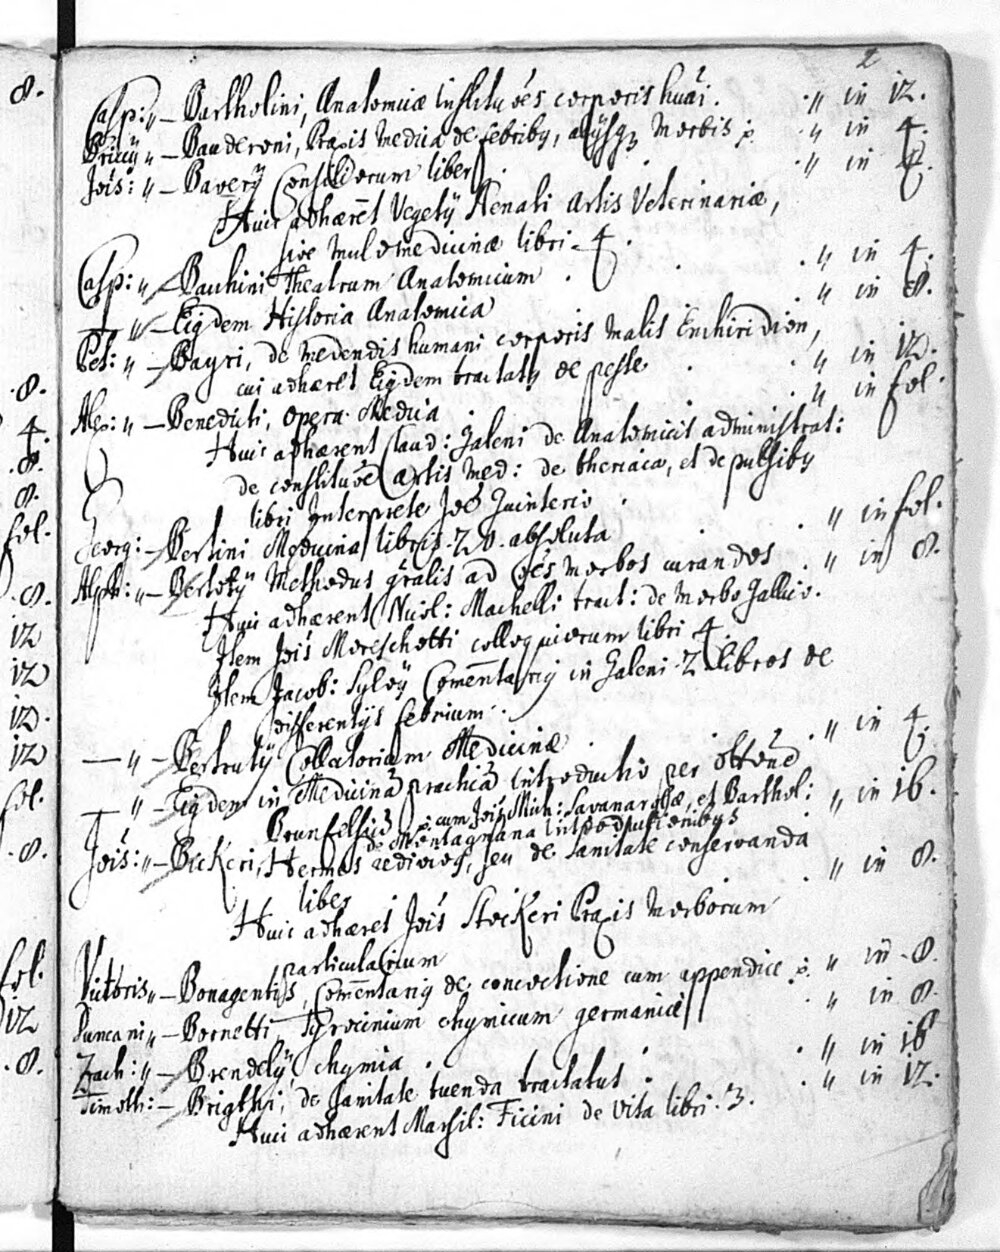 2
Casp: „ – Bartholini, Anatomicæ Institutões corporis huāi. „ in 12.
Briccij „ – Bauderoni, Praxis Medica de febribꝯ, alijsqꝫ Morbis p. „ in 4.
Jōis: „ – Baverij Consiliorum liber. „ in 4.
Huic adhæret Vegetij Renati Artis Veterinariæ,
sive mulomedicinæ libri 4.
Casp: „ – Bauhini Theatrum Anatomicum. „ in 4.
– „ – Eiqdem Historia Anatomica „ in 8.
Pet: „ – Bayri, de Medendis humani corporis Malis Enchiridion,
cui adhæret Eiqdem tractatꝯ de peste „ in 12.
Alex: „ – Benedicti, opera Medica. „ in fol.
Huic adhærent Claud: Galeni de Anatomicis administrat:
de constitutōe Artis Med: de theriaca, et de pulsibꝯ
libri Interprete Joē Guinterio.
Georg: – Bertini Medicina libris 20. absoluta „ in fol.
Alph: „ – Bertotij Methodus gr̄alis ad oēs Morbos curandos „ in 8.
Huic adhærent Nicol: Machelli tract: de Morbo Gallico.
Item Jōis Moreschotti colloquiorum libri 4.
Item Jacob: Sylvij Com̄entariꝯ in Galeni 2 libros de
differentijs febrium.
– „ – Bertrutij Collectorium Medicinæ „ in 4.
– „ – Eiqdem in Medicinā practicā introductio per Othonē
Brunfelsiū p. cum Jōis Mich: Savanarolæ, et Barthol: „ in 16.
de Montagnana Introductionibꝯ
Jōis: „ – Bickeri, Hermes redivivꝯ, seu de sanitate conservanda
liber. „ in 8.
Huic adhæret Jōis Stockeri Praxis Morborum
particularium
Victoris „ – Bonagentis, Com̄entariꝯ de concoctione cum appendice p. „ in 8.
Duncani „ – Bornetti, Tyrocinium chymicum germanicè „ in 8.
Zach: „ – Brendelij chymia. „ in 16
Timoth: – Brigthi, de sanitate tuenda tractatus. „ in 12.
Huic adhærent Marsil: Ficini de vita libri 3.
8.
8.
4.
8.
8.
fol.
8.
12
12
12.
12
fol.
8.
fol.
12
8.